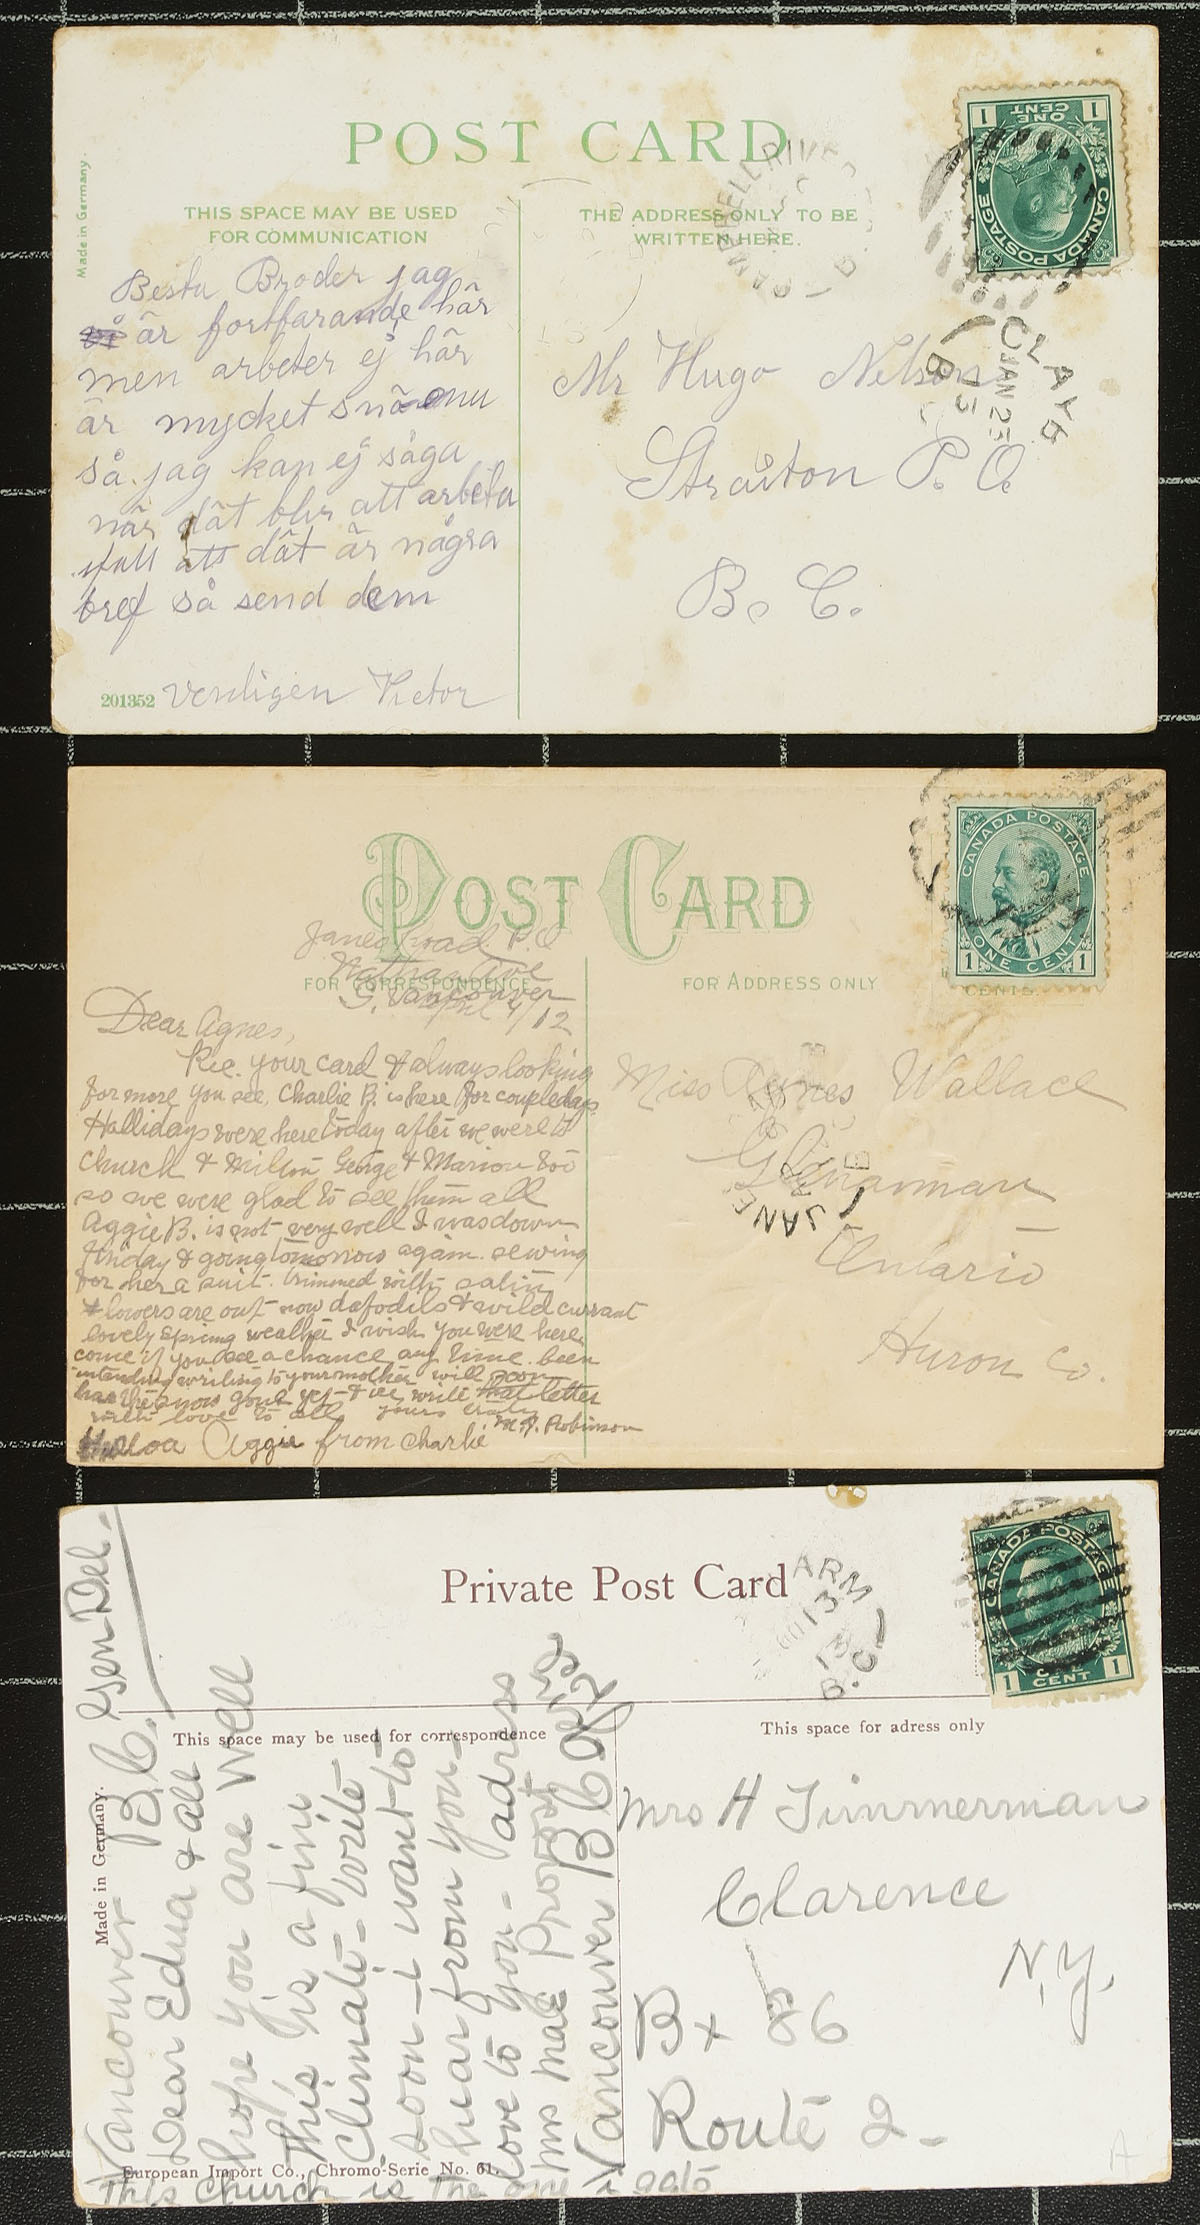 POST CARD
Made in Germany.
THIS SPACE MAY BE USED
FOR COMMUNICATION
THE ADDRESS ONLY TO BE
WRITTEN HERE.
Besta Broder jag
är fortfarande här
men arbeter ej här
är mycket snö enu
så jag kan ej säga
när dät blir att arbeta
ifall att dät är några
bref så send dem
201352
Venligen Victor
Mr Hugo Nelson
P. O.
B. C.
CANADA POSTAGE
ONE CENT
1 1
CAMPBELL RIVER
B
CLAYO
JAN 23
13
B
POST CARD
FOR CORRESPONDENCE
FOR ADDRESS ONLY
CENTS.
Janes Road. P.O
Ave
S. Vancouver
April 9/12
Dear Agnes,
Rec. your card & always looking
for more you see, Charlie B. is here for couple days
Hallidays were here today after we were to
church & Milton George & Marion too
so we were glad to see them all
Aggie B. is not very well I was down
Friday & going tomorrow again. sewing
for her a suit. trimmed with satin
flowers are out now dafodils & wild currant
lovely spring weather I wish you were here
come if you see a chance any time. been
intending writing to your mother will soon
has the snow gone yet & ill write that letter
with love to all yours truly
M. A. Robinson
Halloa Aggie from Charlie
Miss Agnes Wallace
Ontario
Huron Co.
CANADA POSTAGE
1 ONE CENT 1
JANE
B
Private Post Card
This space may be used for correspondence
This space for adress only
Made in Germany.
European Import Co., Chromo-Serie No. 61.
Vancouver B.C. Gen Del.
Dear Edna & all
hope you are Well
This is a fine
Climate - write -
soon - i want to -
hear from you -
love to you - adress
Mrs Mae Provost
Vancouver B C
This church is the one i go to
Mrs H Timmerman
Clarence
N.Y.
Bx 86
Route 2 -
A
CANADA POSTAGE
1 ONE CENT 1
ARM
13
13
B.C.